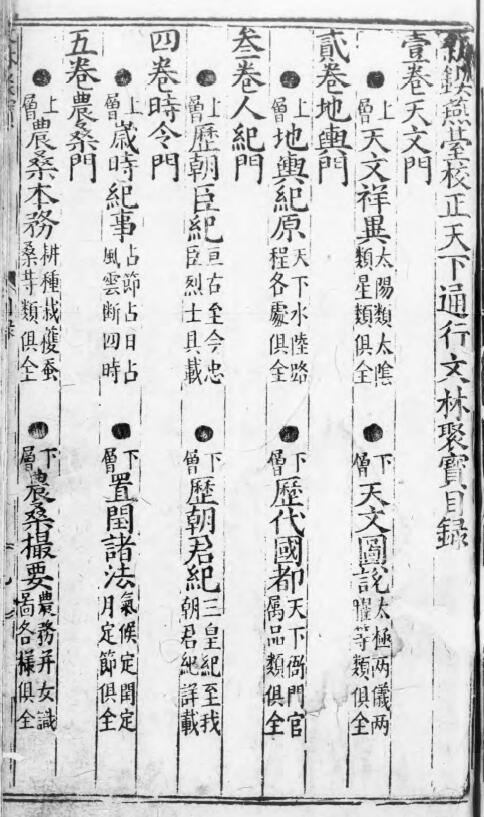 新鋟燕臺校正天下通行文林聚寳目録
壹卷天文門
上層 天文祥異 太陽類太陰類星類俱全
下層 天文圖說 太極兩儀兩曜等類俱全
貳卷地輿門
上層 地輿紀原 天下水陸路程各處俱全
下層 歷代國都 天下衙門官属品類俱全
叁卷人紀門
上層 歷朝臣紀 亘古至今忠臣烈士具載
下層 歷朝君紀 三皇紀至我朝君紀詳載
四卷時令門
上層 歲時紀事 占節占日占風雲断四時
下層 置閏諸法 氣候定閏定月定節俱全
五卷農桑門
上層 農桑本務 耕種栽穫蚕桑等類俱全
下層 農桑撮要 農務并女識啚各樣俱全